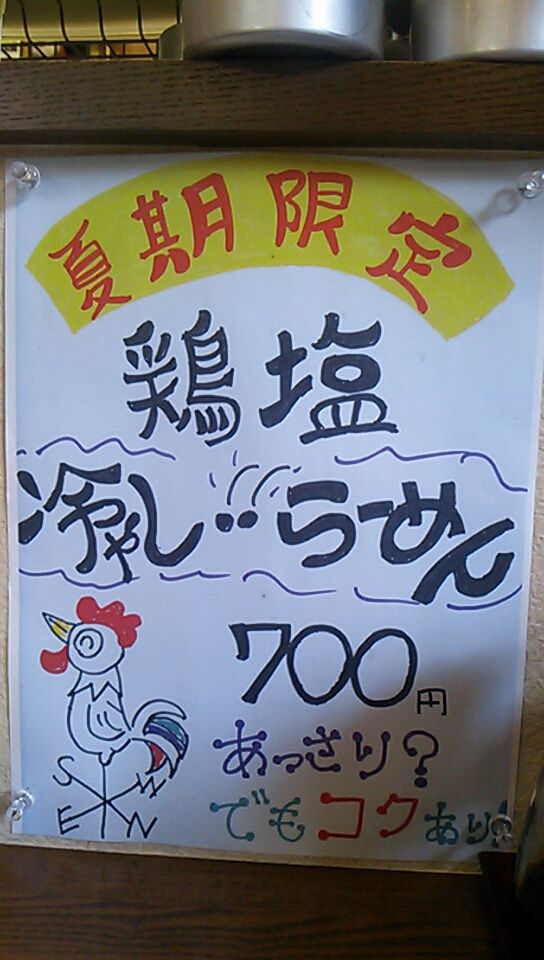 夏期限定
鶏塩
冷やし らーめん
700円
あっさり?
でもコクあり!
S W
E N